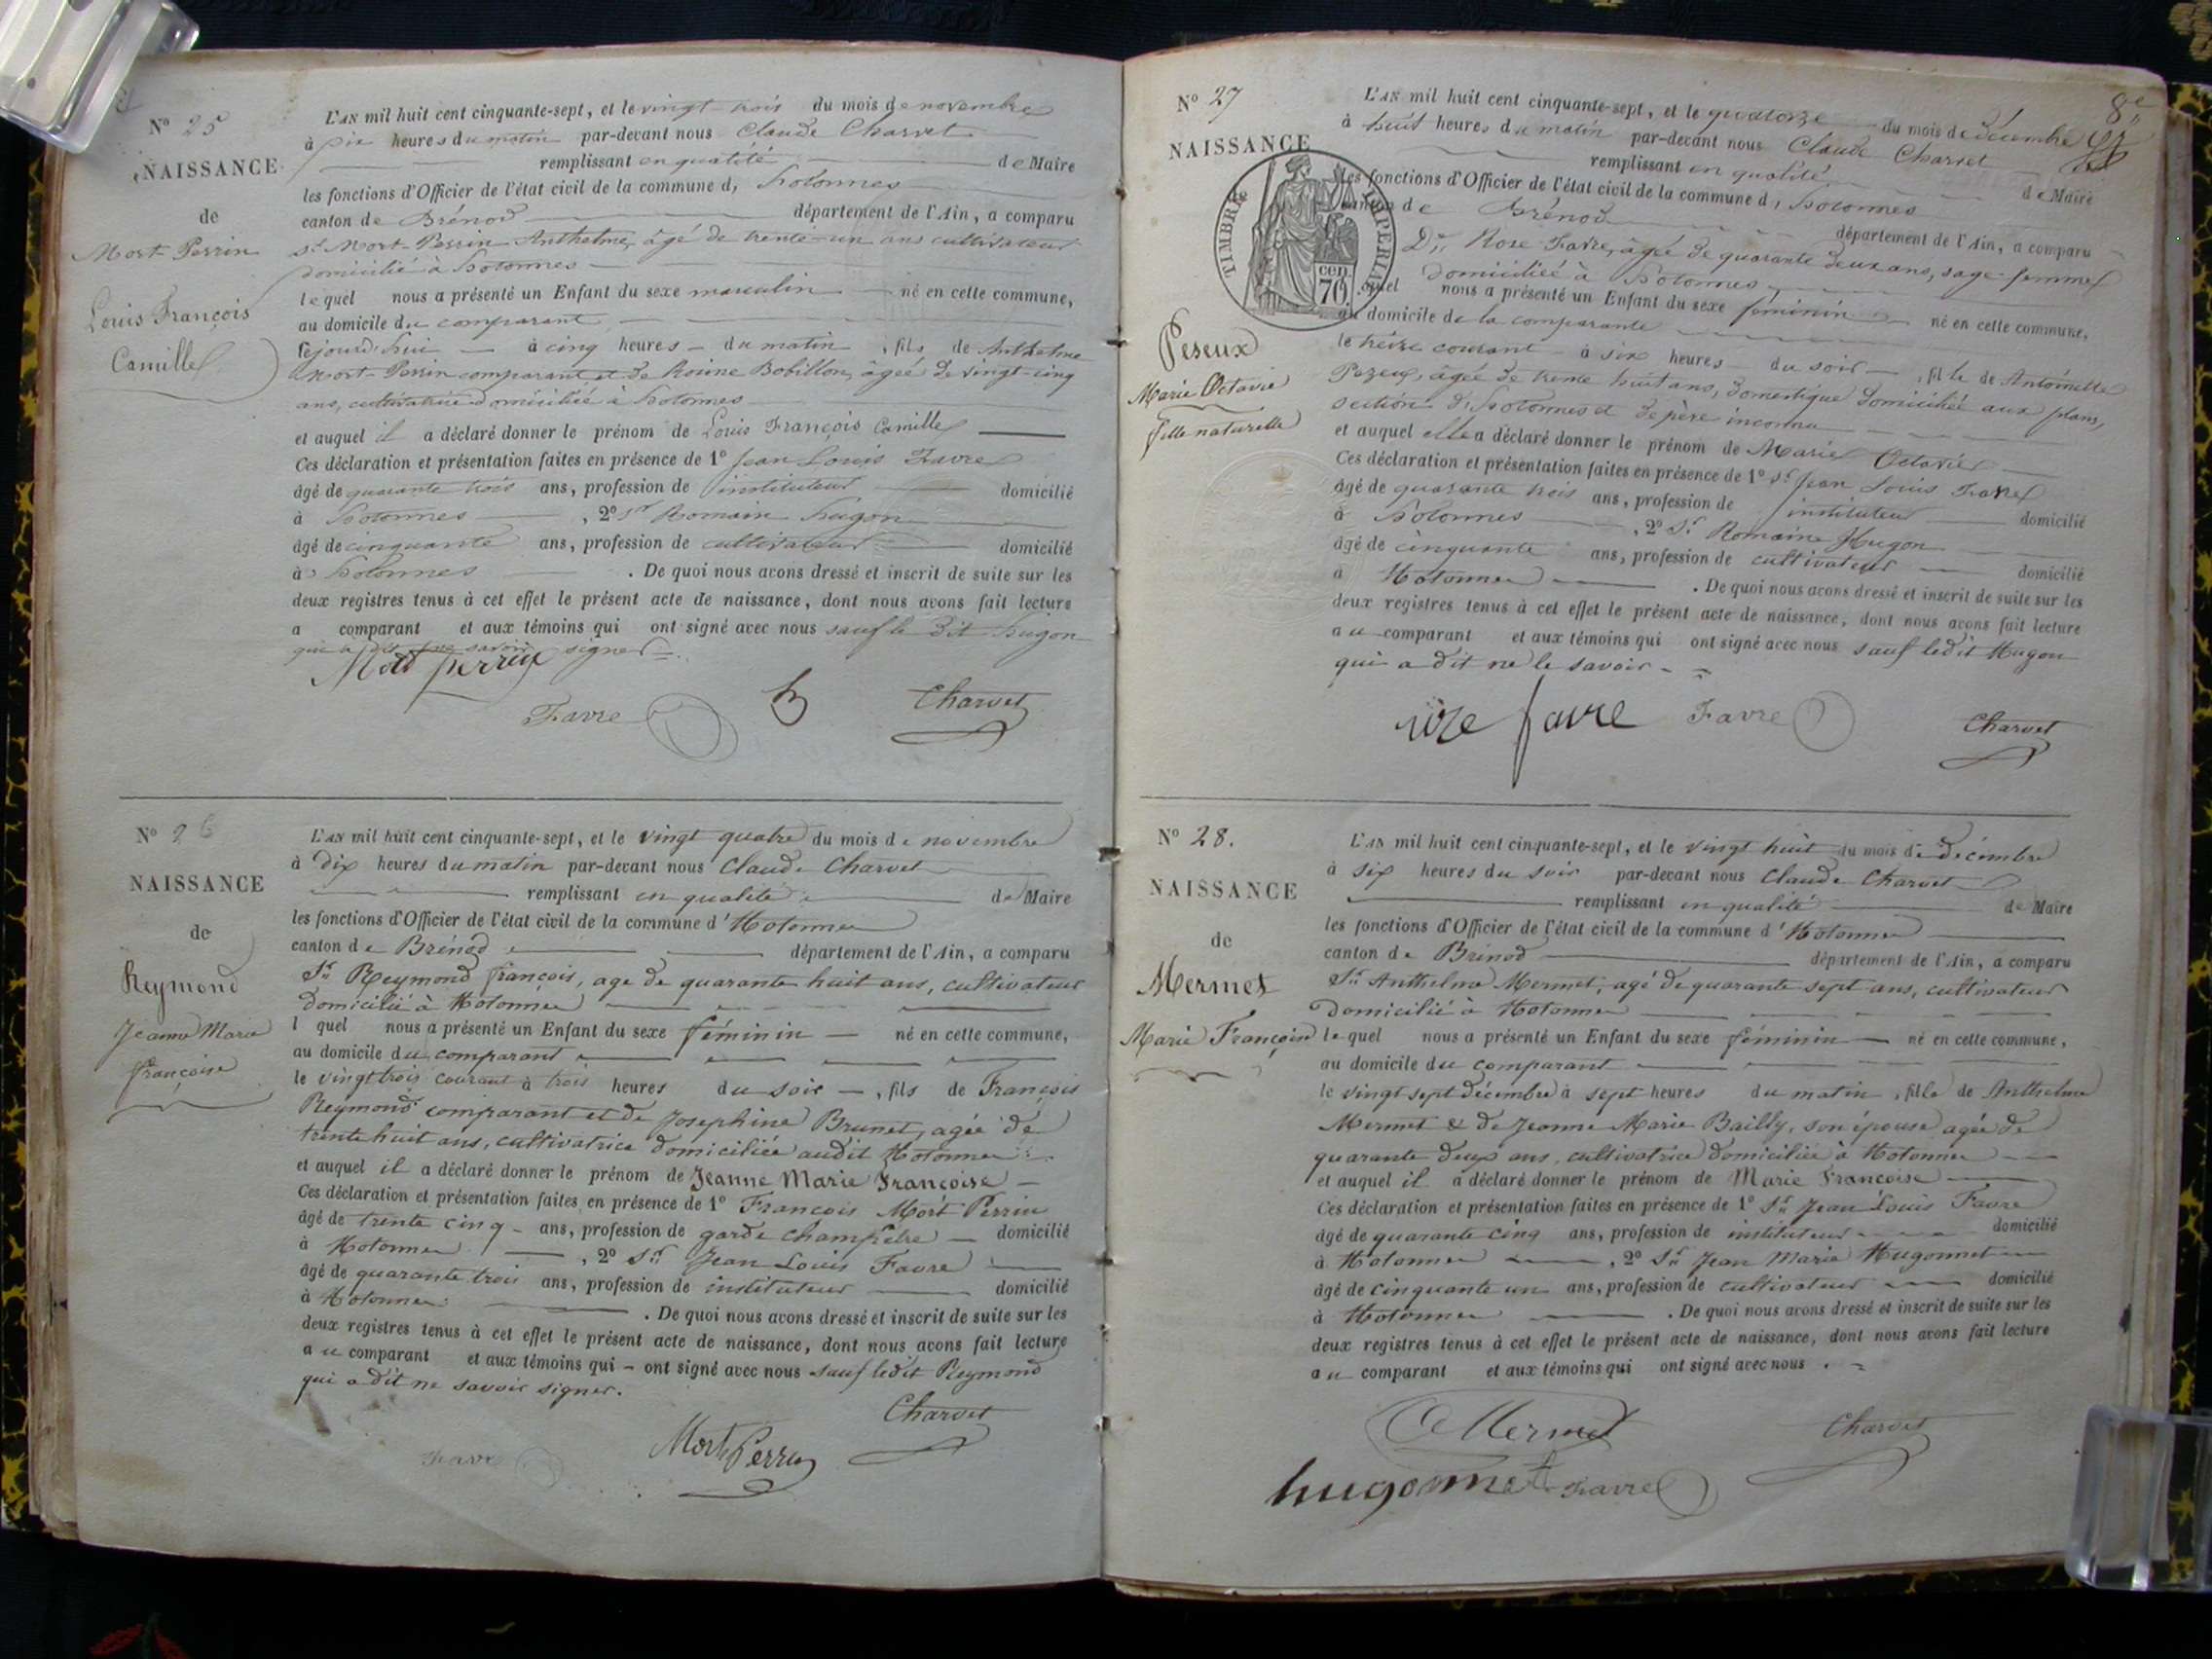 N° 25
NAISSANCE
de
Mort-Perrin
Louis François
Camille
L'AN mil huit cent cinquante-sept, et le vingt trois du mois de novembre
à six heures du matin par-devant nous Claude Charvet
remplissant en qualité de Maire
les fonctions d'Officier de l'état civil de la commune d' hotonnes
canton de Brénod département de l'Ain, a comparu
Sr Mort-Perrin Anthelme, âgé de trente-un ans cultivateur
domicilié à hotonnes
lequel nous a présenté un Enfant du sexe masculin né en cette commune,
au domicile du comparant
cejourd'hui à cinq heures du matin, fils de Anthelme
Mort-Perrin comparant et de Bobillon, âgée de vingt-cinq
ans, cultivatrice domiciliée à hotonnes
et auquel il a déclaré donner le prénom de Louis François Camille
Ces déclaration et présentation faites en présence de 1° Jean Louis Favre
âgé de quarante trois ans, profession de instituteur domicilié
à hotonnes, 2° Sr Romain hugon
âgé de cinquante ans, profession de cultivateur domicilié
à hotonnes. De quoi nous avons dressé et inscrit de suite sur les
deux registres tenus à cet effet le présent acte de naissance, dont nous avons fait lecture
a comparant et aux témoins qui ont signé avec nous sauf le dit hugon
qui a dit ne savoir signer
Mort perrin
Favre Charvet
N° 26
NAISSANCE
de
Reymond
Jeanne Marie
françoise
L'AN mil huit cent cinquante-sept, et le vingt quatre du mois de novembre
à dix heures du matin par-devant nous Claude Charvet
remplissant en qualité de Maire
les fonctions d'Officier de l'état civil de la commune d'Hotonnes
canton de Brénod département de l'Ain, a comparu
Sr Reymond françois, age de quarante huit ans, cultivateur
domicilié à Hotonnes
l quel nous a présenté un Enfant du sexe féminin né en cette commune,
au domicile du comparant
le vingt trois courant à trois heures du soir, fils de François
Reymond comparant et de Josephine Brunet, agée de
trente huit ans, cultivatrice domiciliée audit Hotonnes
et auquel il a déclaré donner le prénom de Jeanne Marie Françoise
Ces déclaration et présentation faites en présence de 1° François Mort Perrin
âgé de trente cinq ans, profession de garde champêtre domicilié
à Hotonnes, 2° Sr Jean Louis Favre
âgé de quarante trois ans, profession de instituteur domicilié
à Hotonnes. De quoi nous avons dressé et inscrit de suite sur les
deux registres tenus à cet effet le présent acte de naissance, dont nous avons fait lecture
au comparant et aux témoins qui ont signé avec nous sauf ledit Reymond
qui a dit ne savoir signer.
Charvet
Favre Mort Perrin
8e
N° 27
NAISSANCE
TIMBRE IMPERIAL
cen. 70.
Peseux
Marie Octavie
fille naturelle
L'AN mil huit cent cinquante-sept, et le quatorze du mois de décembre
à huit heures du matin par-devant nous Claude Charvet
remplissant en qualité de Maire
les fonctions d'Officier de l'état civil de la commune d' hotonnes
canton de Brénod département de l'Ain, a comparu
Rose Favre, âgée de quarante deux ans, sage-femme
domiciliée à hotonnes
quel nous a présenté un Enfant du sexe féminin né en cette commune,
au domicile de la comparante
le treize courant à six heures du soir, fille de Antoinette
Pezeux, âgée de trente huit ans, domestique domiciliée aux plans,
section d'hotonnes et de père inconnu
et auquel elle a déclaré donner le prénom de Marie Octavie
Ces déclaration et présentation faites en présence de 1° Sr Jean Louis Favre
âgé de quarante trois ans, profession de instituteur domicilié
à hotonnes, 2° Sr Romain Hugon
âgé de cinquante ans, profession de cultivateur domicilié
à Hotonnes. De quoi nous avons dressé et inscrit de suite sur les
deux registres tenus à cet effet le présent acte de naissance, dont nous avons fait lecture
au comparant et aux témoins qui ont signé avec nous sauf ledit Hugon
qui a dit ne le savoir
rose favre Favre Charvet
N° 28.
NAISSANCE
de
Mermet
Marie Françoise
L'AN mil huit cent cinquante-sept, et le vingt huit du mois de décembre
à six heures du soir par-devant nous Claude Charvet
remplissant en qualité de Maire
les fonctions d'Officier de l'état civil de la commune d'Hotonnes
canton de Brénod département de l'Ain, a comparu
Sr Anthelme Mermet, agé de quarante sept ans, cultivateur
domicilié à Hotonnes
lequel nous a présenté un Enfant du sexe féminin né en cette commune,
au domicile du comparant
le vingt sept décembre à sept heures du matin, fille de Anthelme
Mermet & de Jeanne Marie Bailly, son épouse agée de
quarante deux ans, cultivatrice domiciliée à Hotonnes
et auquel il a déclaré donner le prénom de Marie Françoise
Ces déclaration et présentation faites en présence de 1° Sr Jean Louis Favre
âgé de quarante cinq ans, profession de instituteur domicilié
à Hotonnes, 2° Sr Jean Marie Hugonnet
âgé de cinquante un ans, profession de cultivateur domicilié
à Hotonnes. De quoi nous avons dressé et inscrit de suite sur les
deux registres tenus à cet effet le présent acte de naissance, dont nous avons fait lecture
au comparant et aux témoins qui ont signé avec nous.
Mermet Charvet
hugonnet Favre